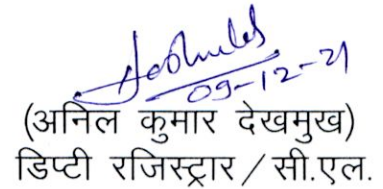 09-12-21
(अनिल कुमार देखमुख)
डिप्टी रजिस्ट्रार / सी.एल.